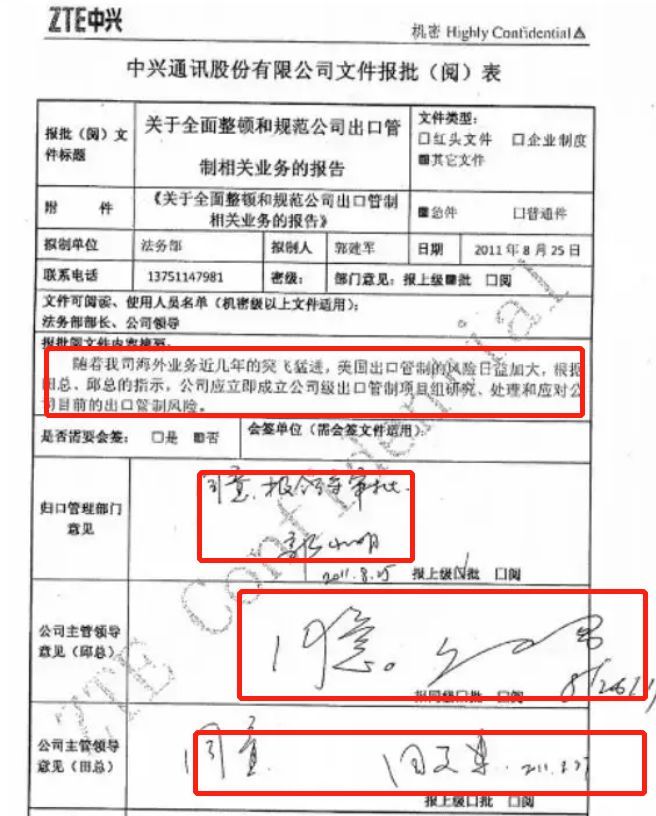 ZTE中兴
机密 Highly Confidential△
中兴通讯股份有限公司文件报批（阅）表
报批（阅）文件标题
关于全面整顿和规范公司出口管
制相关业务的报告
文件类型：
□红头文件 □企业制度
■其它文件
附 件
《关于全面整顿和规范公司出口管制
相关业务的报告》
■急件 □普通件
拟制单位 法务部 拟制人 郭建军 日期 2011年8月25日
联系电话 13751147981 密级： 部门意见：报上级■批 □阅
文件可阅读、使用人员名单（机密级以上文件适用）：
法务部部长、公司领导
报批阅文件内容摘要：
随着我司海外业务近几年的突飞猛进，美国出口管制的风险日益加大，根据
田总、邱总的指示，公司应立即成立公司级出口管制项目组研究、处理和应对公
司目前的出口管制风险。
是否需要会签： □是 ■否 会签单位（需会签文件适用）：
归口管理部门
意见
同意.报领导审批.
2011.8.25
报上级☑批 □阅
公司主管领导
意见（邱总）
同意。
8/26/11
报同级□批 □阅
公司主管领导
意见（田总）
同意
2011.8.27
报上级□批 □阅
ZTE Confidential